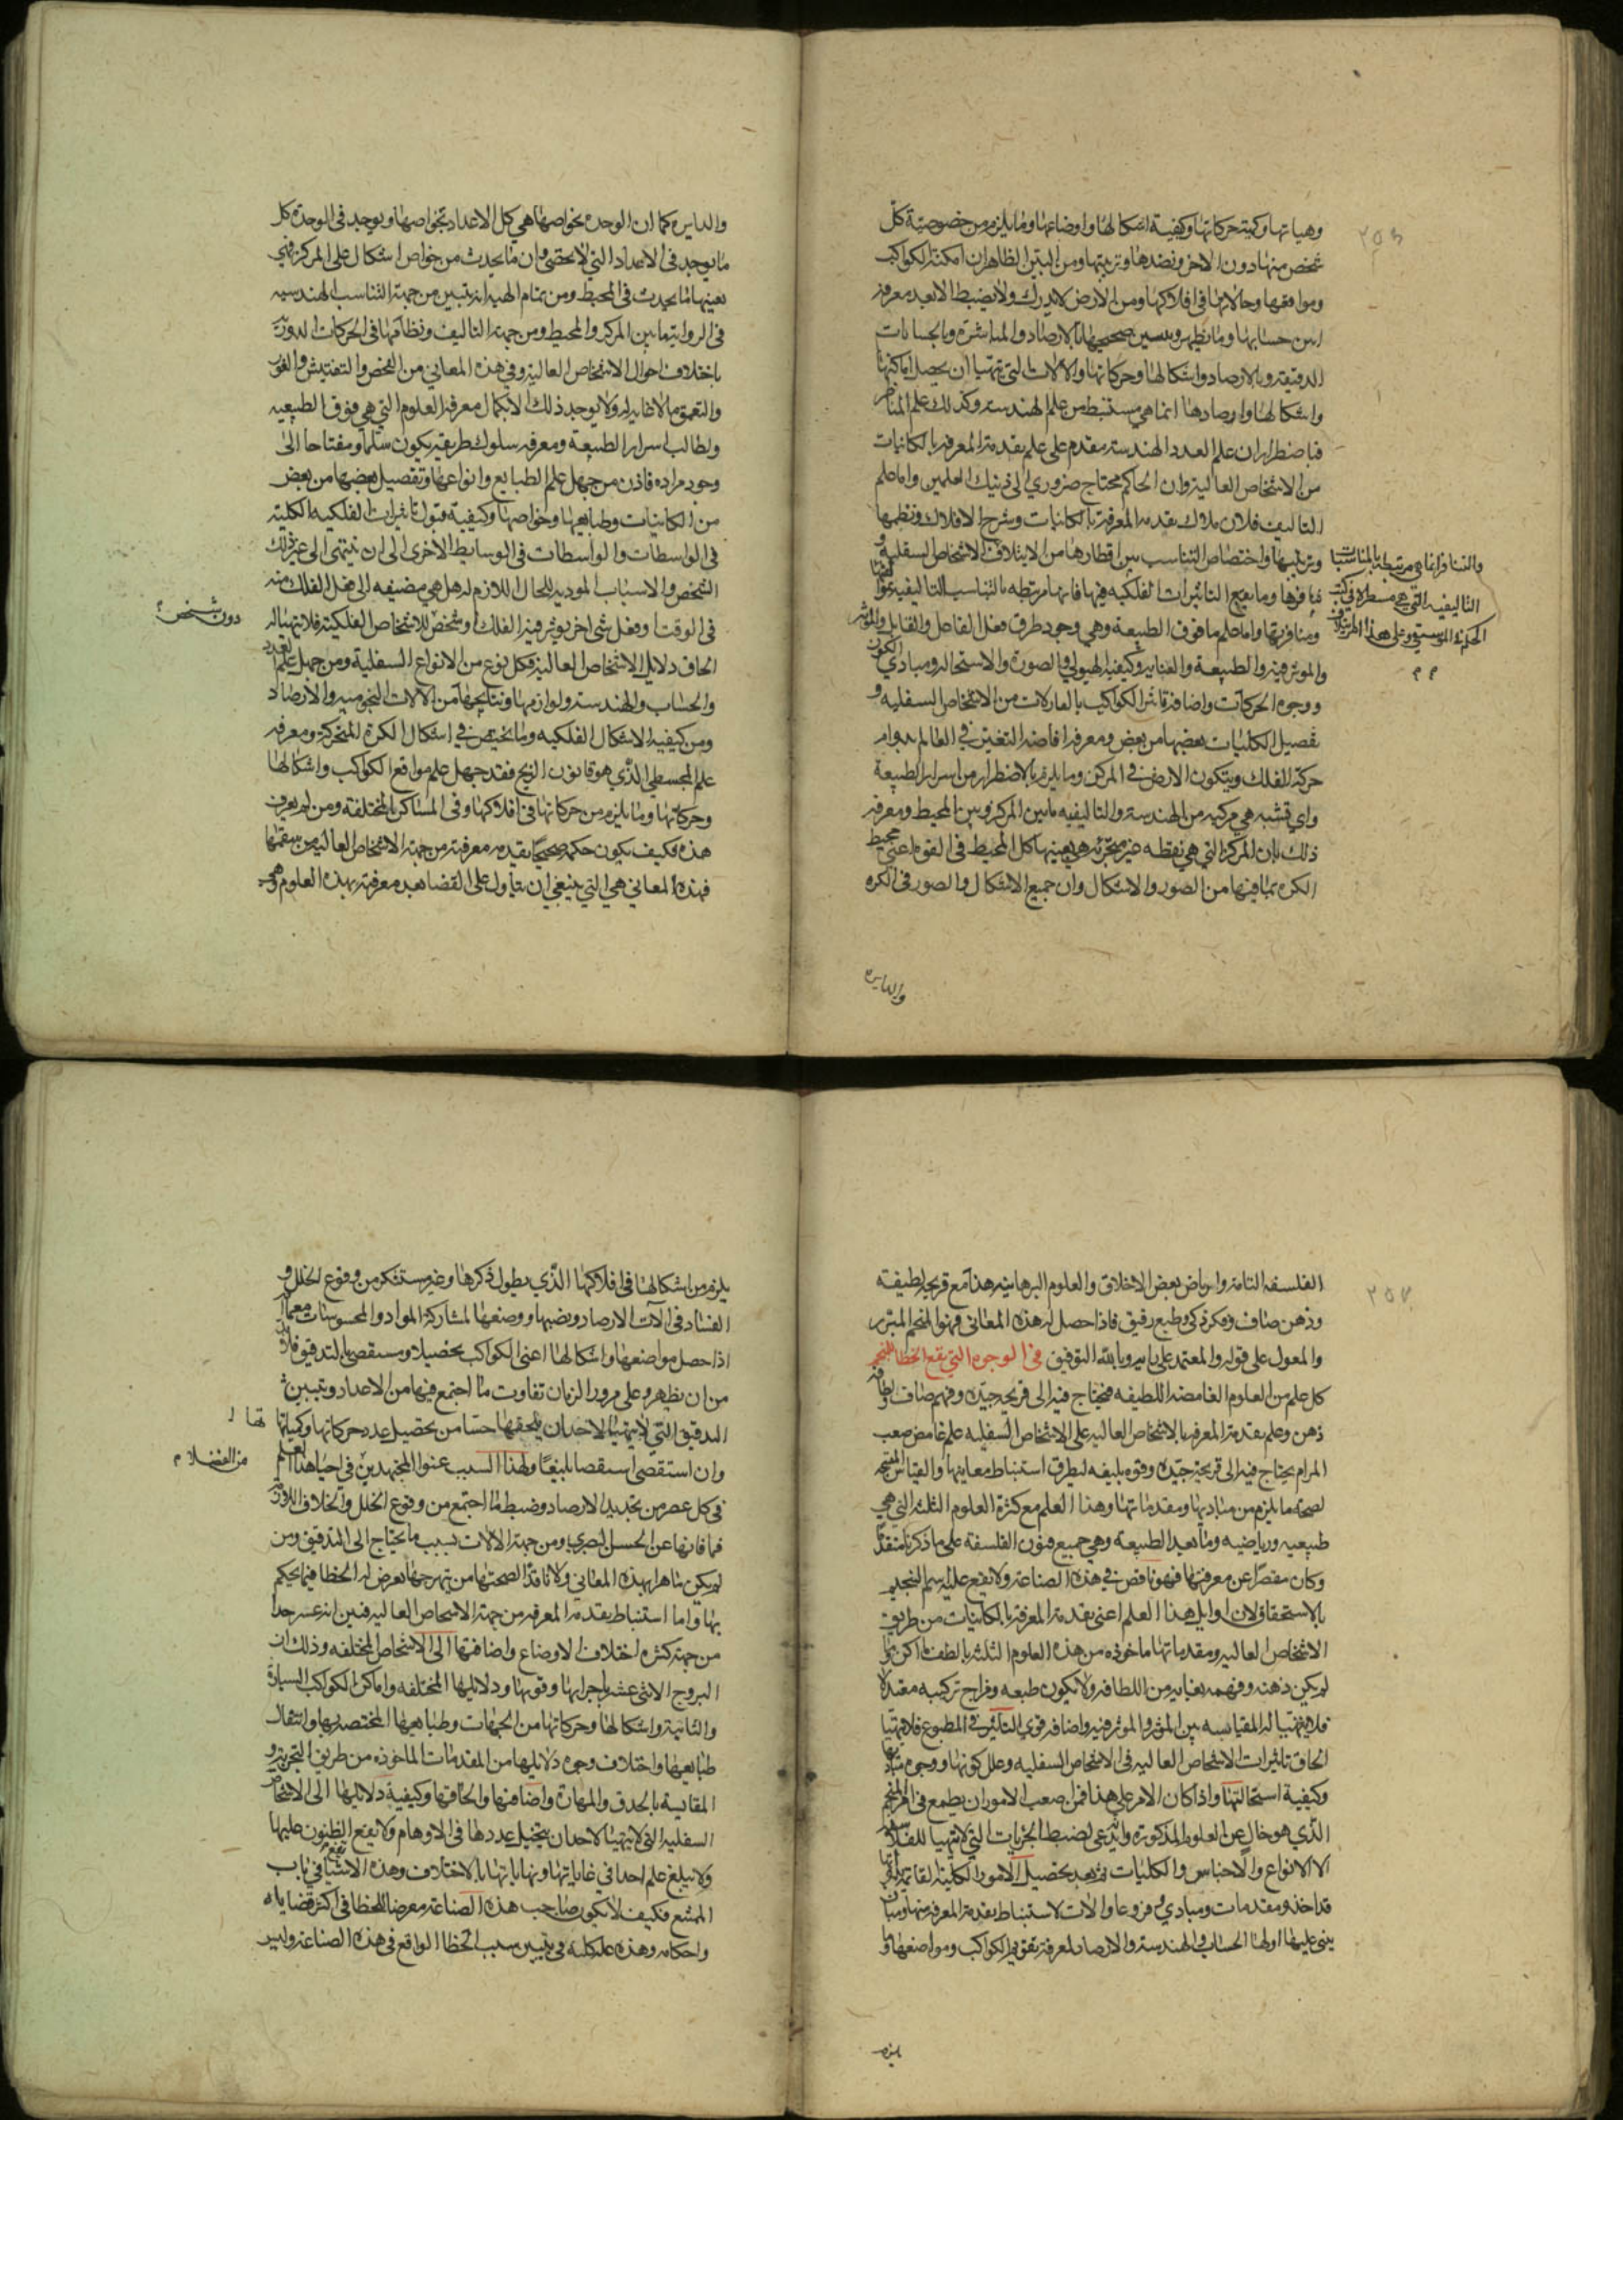 وهياتها وكمية حركاتها وكيفية اشكالها واوضاعها وما يلزم من خصوصية كل
شخص منها دون الاخر ونضدها وترتيبها ومن البين الظاهر ان امكنة الكواكب
ومواقعها وحالاتها في افلاكها ومن الارض لا يدرك ولا يضبط الا بعد معرفة
حسابها وما يظهر تصحيحها بالارصاد والمباشرة وبالحسابات
الدقيقة وبالارصاد واشكالها وحركاتها والالات التي تتهيا ان يحصل اماكنها
واشكالها وارصادها انما هي مستنبط من علم الهندسة وكذلك علم المناظر
فباضطرار ان علم العدد الهندسة مقدم على علم تقدمة المعرفة بالكائنات
من الاشخاص العالية وان الحاكم محتاج ضروري الى ذينك العلمين واما علم
التاليف فلان ملاك تقدمة المعرفة بالكائنات وشرح الافلاك ونظمها
وترتيبها واختصاص التناسب بين اقطارها من الايتلاف الاشخاص السفلية و
تنافرها وما يقع التاثيرات الفلكيه فيها فانها مرتبطه بالتناسب التاليفيه
والتنافر انما هي مرتبطه بالمناسبات
التاليفيه التي هي مسطره في كتب
الحكمة الموسيقى وعلى هذا
ومنافرتها واما علم ما فوق الطبيعة وهي وجود طرف فعل الفاعل والقابل والموثر
والموثر فيه والطبيعة والعناية وكيفية الهيولى والصورة والاستحاله ومبادي الكون
ووجوه الحركات واضافة تاثير الكواكب بالمدركات من الاشخاص السفليه و
تفصيل الكليات بعضها من بعض ومعرفة افاضة التغير في العالم بدوام
حركة الفلك ويتكون الارض في المركز وما يلزم بالاضطرار من اسرار الطبيعة
واي قشبه هي مركبه من الهندسة والتاليفيه ما بين المركز وبين المحيط ومعرفة
ذلك بان المركز التي هي نقطه غير متجزئه هي بعينها كل المحيط في القوه اعنى محيط
الكره بما فيها من الصور والاشكال وان جميع الاشكال والصور في الكره
والدايره
والدايره كما ان الوحده بخواصها هي كل الاعداد بخواصها ويوجد في الوحدة كل
ما يوجد في الاعداد التي لا تحصى وان ما يحدث من خواص اشكال على المركز فهي
بعينها ما يحدث في المحيط ومن تمام الهيه انه يتبين من جهة التناسب الهندسيه
في الزوايا ما بين المركز والمحيط ومن جهة التاليف ونظامها في الحركات الدوريه
باختلاف احوال الاشخاص العالية وفي هذه المعاني من الفحص والتفتيش والغور
والتعمق ما لا نهاية له ولا يوجد ذلك الا بكمال معرفة العلوم التي هي فوق الطبيعيه
ولطالب اسرار الطبيعة ومعرفة سلوك طريقه يكون سلما ومفتاحا الى
وجود مراده فاذن من جهل علم الطبايع وانواعها وتفصيل بعضها من بعض
من الكاينات وطبايعها وخواصها وكيفية قبول تاثيرات الفلكيه الكلية
في الواسطات والواسطات في الوسايط الاخرى الى ان ينتهى الى غير ذلك
الشخص والاسباب المودية للحال اللازم له هل هي مضيفه الى فعل الفلك منه
في الوقت او فعل شى اخر يوثر فيه الفلك او شخص للاشخاص الفلكية فلا يتهيا له
دون شخص
الحاق دلايل الاشخاص العالية فكل نوع من الانواع السفلية ومن جهل علم العدد
والحساب والهندسة ولوازمها ونتايجها من الالات النجوميه والارصاد
ومن كيفية الاشكال الفلكيه ولما يختص في اشكال الكرة المتحركة ومعرفة
علم المجسطي الذي هو قانون الزيج فقد جهل علم مواقع الكواكب واشكالها
وحركاتها وما يلزم من حركاتها في افلاكها وفي المساكن المختلفه ومن لم يعرف
هذه فكيف يكون حكمه صحيحا بتقدمه معرفته من جهة الاشخاص العاليه من سقمها
فهذه المعاني هي التي ينبغي ان يتاول على القضا بعد معرفته بهذه العلوم وهي
الفلسفه التامة وارتياض بعض الاخلاق والعلوم البرهانيه هذا مع قريحه لطيفته
وذهن صاف وفكر ذكي وطبع رقيق فاذا حصل له هذه المعاني فهو المنجم المبرز
والمعول على قوله والمعتمد على رايه وبالله التوفيق في الوجوه التي يقع الخطا للمنجم
كل علم من العلوم الغامضه اللطيفه فيحتاج فيه الى قريحه جيده وفهم صاف ولطافة
ذهن وعلم تقدمة المعرفة بالاشخاص العاليه على الاشخاص السفليه علم غامض صعب
المرام يحتاج فيه الى قريحة جيده وقوه بليغه لتطرق استنباط معاينها والقياس المنتجه
لصحة ما يلزم من مباديها ومقدماتها وهذا العلم مع كثرة العلوم الثلثه التي هي
طبيعيه ورياضيه وما بعد الطبيعه وهي جميع فنون الفلسفة على ما ذكرنا متقدما
وكان مقصرا عن معرفتها فهو ناقص في هذه الصناعة ولا يقع عليه اسم التنجيم
بالاستحقاق لان اوايل هذا العلم اعني تقدمة المعرفة بالكاينات من طريق
الاشخاص العاليه ومقدماتها ماخوذه من هذه العلوم الثلثه بالطف
لم يكن ذهنه وفهمه بغاية من اللطافه ولا يكون طبعه ومزاج تركيبه معتدلا
فلا يتهيا له المقايسه بين المؤثر والموثر فيه واضافة قوى التاثير في المطبوع فلا يتهيا
الحاق تاثيرات الاشخاص العاليه في الاشخاص السفليه وعلل كونها ووجوه مباديها
وكيفية استحالتها واذا كان الامر على هذا فمن اصعب الامور ان يطمع في امر المنجم
الذي هو خال عن العلوم المذكوره وان يدعى لضبط الجزيات التي لا يتهيا للفلاسفه
الا الانواع والاجناس والكليات ثم بعد تحصيل الامور الكلية
قد اخذه ومقدمات ومبادي وفروعا والات لاستنباط تقدمة المعرفة منها ومما
يبنى عليها اولها الحساب والهندسة والارصاد لمعرفة تقويم الكواكب ومواضعها وما
يلزم
يلزم من اشكالها في افلاكها الذي يطول ذكرها وغير مستنكر من وقوع الخلل و
الفساد في آلات الارصاد ونصبها ووضعها لمشاركة المواد والمحسوسات معها
اذا حصل مواضعها واشكالها اعنى الكواكب تحصيلا ومستقصى بالتدقيق فلا بد
من ان يظهر على مرور الزمان تفاوت ما اجتمع فيها من الاعداد ويتبين
التدقيق التي لا يتهيا لاحد ان يلحقها حسا من تحصيل عدد حركاتها وكمياتها
وان استقصى استقصا بليغا ولهذا السبب عنوا المجتهدين في احيا هذا العلم
من الفضلا
في كل عصر من تجديد الارصاد وضبط ما اجتمع من وقوع الخلل والخلاف
فما فاتها عن الحس البصري ومن جهة الالات بسبب ما يحتاج الى التدقيق ومن
لم يكن ماهرا بهذه المعاني ولا ناقدا لصحتها من بهرجها يعرض له الخطا فيما يحكم
بها واما استنباط تقدمة المعرفه من جهة الاشخاص العاليه فبين انه عسر جدا
من جهة كثرة اختلاف الاوضاع واضافتها الى الاشخاص المختلفه وذلك ان
البروج الاثنى عشر باجرايها وقوتها ودلايلها المختلفه واماكن الكواكب السيارة
والثابتة واشكالها وحركاتها من الجهات وطبايعها المختصة بها وانتقال
طبايعها واختلاف وجوه دلايلها من المقدمات الماخوذه من طريق التجربة و
المقايسة بالحدق والمهارة واضافتها والحاقها وكيفية دلايلها الى الاشخاص
السفليه التي لا يتهيا لاحد ان يتخيل عددها في الاوهام ولا يقع الظنون عليها
ولا يبلغ علم احد في غاياتها ونهاياتها بالاختلاف وهذه الاشيا تقع في باب
الممتنع فكيف لا يكون صاحب هذه الصناعة معرضا للخطا في اكثر قضاياه
واحكامه وهذه علة كلية في تبيين سبب الخطا الواقع في هذه الصناعة وليس